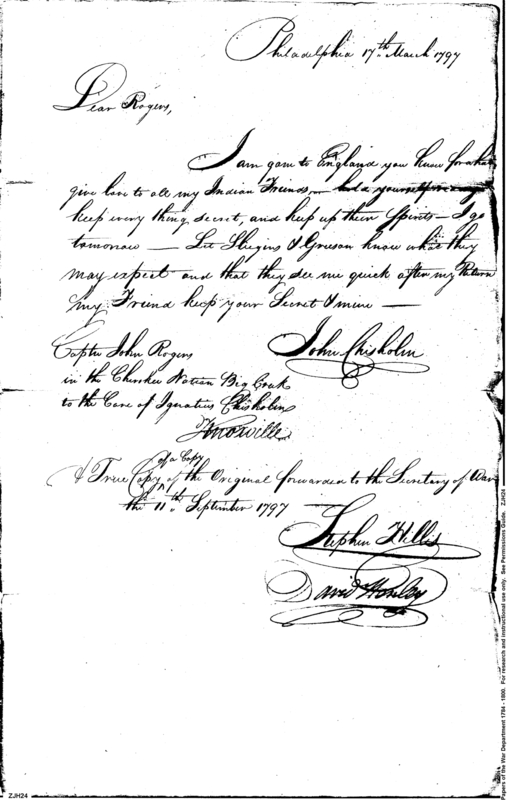 Philadelphia 17th March 1797
Dear Rogers,
I am gone to England you know for what
give love to all my Indian Friends—
keep every thing secret, and keep up their Spirits – I go
tomorrow — Let & know what they
may expect and that they see me quick after my Return
my Friend keep your Secret & mine —
John Chisholm
Captn John Rogers
in the Cherokee Nation Big Creek
to the Care of Ignatius Chisholm
Knoxville
of a Copy
A True Copy of the Original forwarded to the Secretary of War
the 11th September 1797
Stephen Hillis
David Henley
ZJH24
Papers of the War Department 1784 - 1800. For research and instructional use only. See Permissions Guide. ZJH24